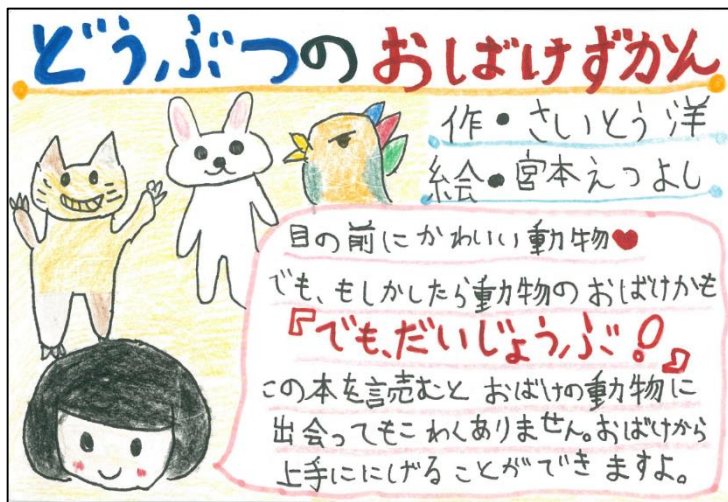 どうぶつの おばけずかん
作・さいとう洋
絵・宮本えつよし
目の前にかわいい動物♥
でも、もしかしたら動物のおばけかも
『でも、だいじょうぶ!』
この本を読むと おばけの動物に
出会ってもこわくありません。おばけから
上手ににげることができますよ。